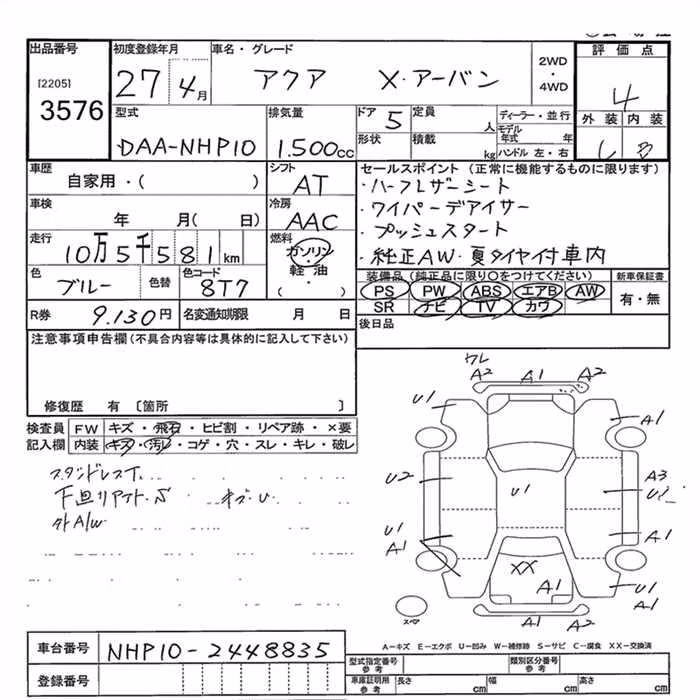 出品番号 初度登録年月 車名・グレード 2WD・4WD 評価点
[2205]
3576 27 4月 アクア X・アーバン 4
型式 排気量 ドア 5 定員 人 ディーラー・並行 外装 内装
モデル年式 年
DAA-NHP10 1.500cc 形状 積載 kg ハンドル 左・右 B
車歴 シフト セールスポイント (正常に機能するものに限ります)
自家用・( ) AT ・ハーフレザーシート
車検 冷房 ・ワイパーデアイサー
年 月( 日) AAC ・プッシュスタート
走行 燃料 ・純正AW・夏タイヤ付車内
10万5千581km ガソリン・軽油・( )
色 色替 色コード 装備品(純正品に限り○をつけてください) 新車保証書
ブルー 8T7 PS PW ABS エアB AW 有・無
SR ナビ TV カワ
R券 9.130円 名変通知期限 月 日 後日品
注意事項申告欄(不具合内容等は具体的に記入して下さい)
修復歴 有 〔箇所 〕
検査員 FW キズ・飛石・ヒビ割・リペア跡・×要
記入欄 内装 キズ・汚レ・コゲ・穴・スレ・キレ・破レ
スタンドレスT.
下廻りアト・S キズ・U
外A/W
ワレ
A2 A1 A2
U1 A1
U2 U1 A3
U1
U1 A1
A1
XX A1 U1
A1
スペア A1 A2
A-キズ E-エクボ U-凹み W-補修跡 S-サビ C-腐食 XX-交換済
車台番号 NHP10-2448835
型式指定番号 参考 類別区分番号 参考
登録番号 車庫証明用 参考 長さ cm 幅 cm 高さ cm